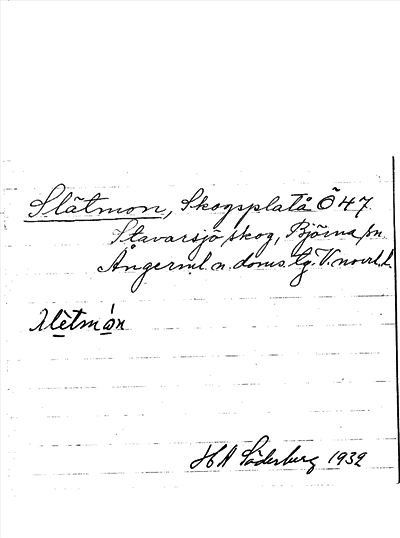 Slätmon, Skogsplatå Ö 47
Stavarsjö skog, Björna sn
Ångerml. n. doms. tg. V. norrl. l.
HA Söderberg 1932